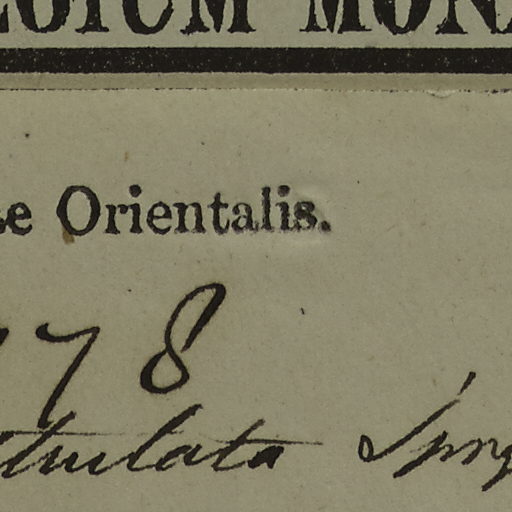 EGIUM MONA
ae Orientalis.
78
tulata Spng